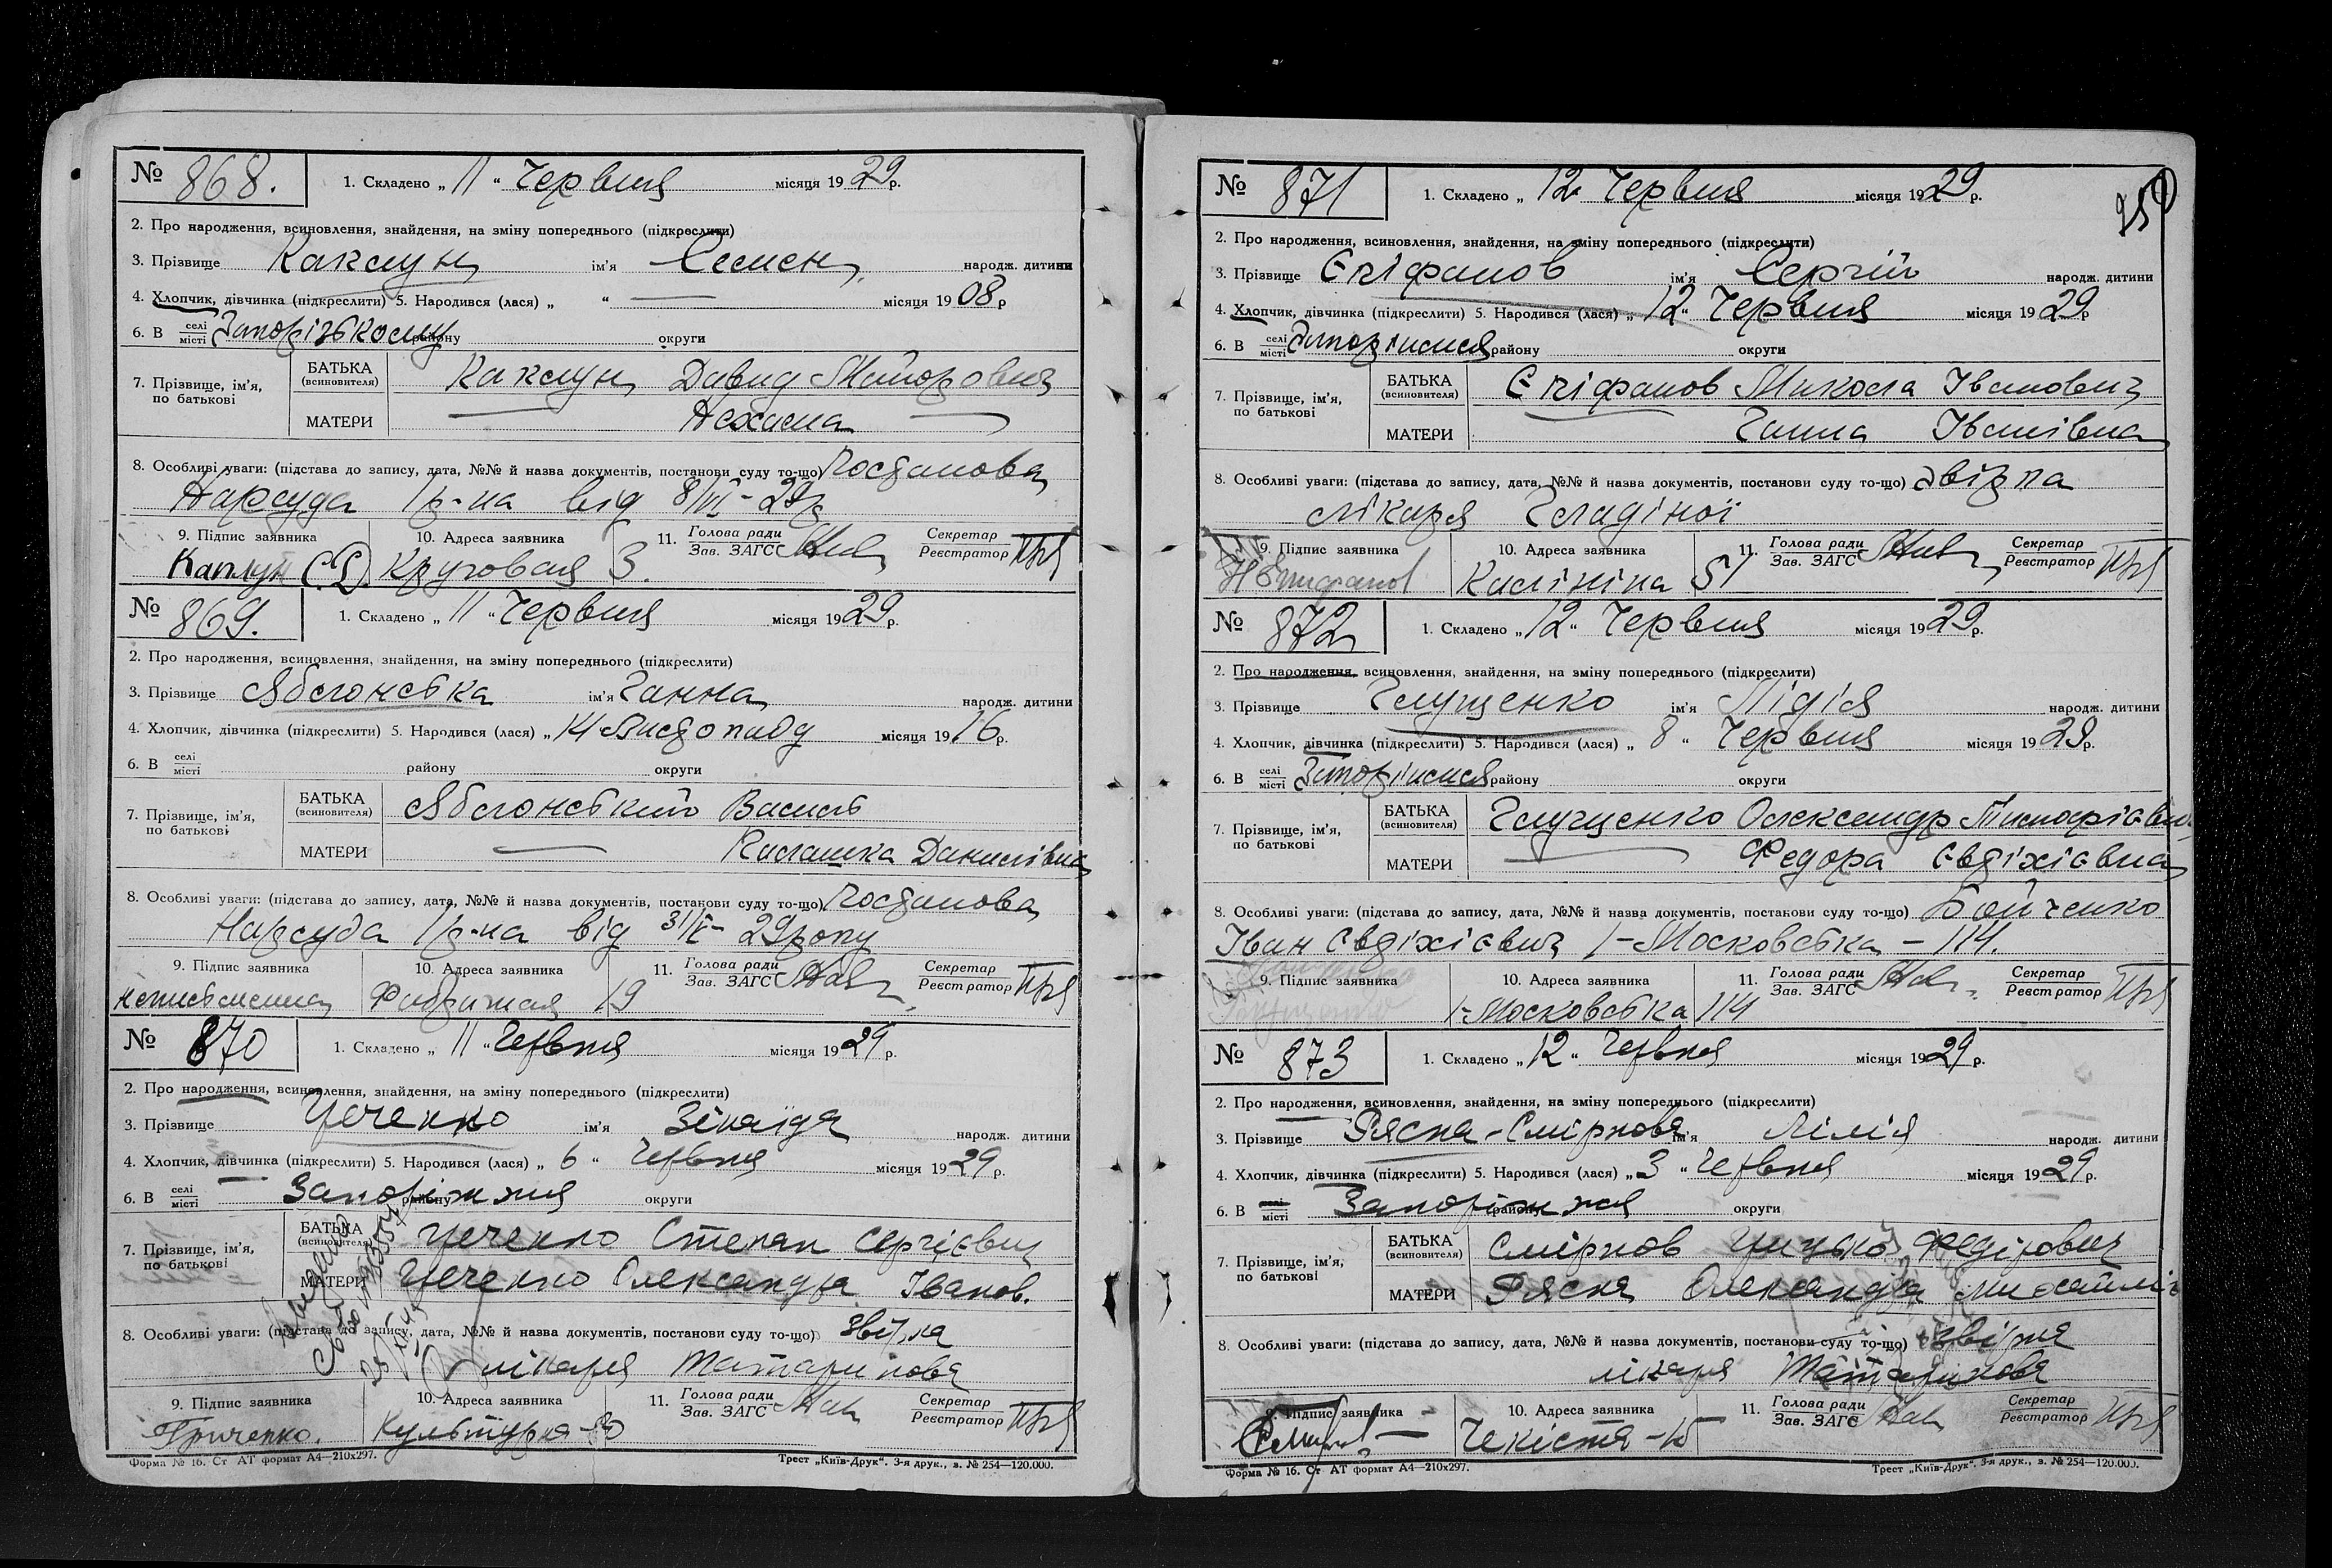 № 868. 1. Складено „ 11 “ Червня місяця 1929 р.
2. Про народження, всиновлення, знайдення, на зміну попереднього (підкреслити)
3. Прізвище Каплун ім'я Семен народж. дитини
4. Хлопчик, дівчинка (підкреслити) 5. Народився (лася) „ “ — місяця 1908 р
6. В селі місті Запоріжкому району округи
7. Прізвище, ім'я, по батькові БАТЬКА (всиновителя) Каплун Давид Майорович
МАТЕРИ — Нехама —
8. Особливі уваги: (підстава до запису, дата, №№ й назва документів, постанови суду то-що) Постанова
Нарсуда 1 р-на від 8/VI - 29 р
9. Підпис заявника 10. Адреса заявника 11. Голова ради Зав. ЗАГС Секретар Реєстратор
Каплун С.Д. Круговая 3.
№ 869. 1. Складено „ 11 “ Червня місяця 1929 р.
2. Про народження, всиновлення, знайдення, на зміну попереднього (підкреслити)
3. Прізвище Яблонська ім'я Ганна народж. дитини
4. Хлопчик, дівчинка (підкреслити) 5. Народився (лася) „ 14 Листопаду місяця 1916 р.
6. В селі місті району округи
7. Прізвище, ім'я, по батькові БАТЬКА (всиновителя) Яблонський Василь
МАТЕРИ — Палашка Данилівна
8. Особливі уваги: (підстава до запису, дата, №№ й назва документів, постанови суду то-що) Постанова
Нарсуда 1 р-на від 31/V - 29 року
9. Підпис заявника 10. Адреса заявника 11. Голова ради Зав. ЗАГС Секретар Реєстратор
неписьменна 19
№ 870 1. Складено „ 11 “ Червня місяця 1929 р.
2. Про народження, всиновлення, знайдення, на зміну попереднього (підкреслити)
3. Прізвище ім'я Зінаїда народж. дитини
4. Хлопчик, дівчинка (підкреслити) 5. Народився (лася) „ 6 “ Червня місяця 1929 р.
6. В селі місті Запоріжжя району округи
7. Прізвище, ім'я, по батькові БАТЬКА (всиновителя) Степан Сергієвич
МАТЕРИ Олександра Іванов.
8. Особливі уваги: (підстава до запису, дата, №№ й назва документів, постанови суду то-що) звірка
лікаря Татаринова
9. Підпис заявника 10. Адреса заявника 11. Голова ради Зав. ЗАГС Секретар Реєстратор
Культурна
Форма № 16. Ст АТ формат А4—210x297. Трест „Київ-Друк“. 3-я друк., з. № 254—120.000.
№ 871 1. Складено „ 12 “ Червня місяця 1929 р.
2. Про народження, всиновлення, знайдення, на зміну попереднього (підкреслити)
3. Прізвище Єпіфанов ім'я Сергій народж. дитини
4. Хлопчик, дівчинка (підкреслити) 5. Народився (лася) „ 12 “ Червня місяця 1929 р
6. В селі місті Запоріжжя району округи
7. Прізвище, ім'я, по батькові БАТЬКА (всиновителя) Єпіфанов Микола Іванович
МАТЕРИ Ганна Іванівна
8. Особливі уваги: (підстава до запису, дата, №№ й назва документів, постанови суду то-що) Звірка
лікаря Гладіної
9. Підпис заявника 10. Адреса заявника 11. Голова ради Зав. ЗАГС Секретар Реєстратор
Н Епифанов Калініна 51
№ 872 1. Складено „ 12 “ Червня місяця 1929 р.
2. Про народження, всиновлення, знайдення, на зміну попереднього (підкреслити)
3. Прізвище Глущенко ім'я Лідія народж. дитини
4. Хлопчик, дівчинка (підкреслити) 5. Народився (лася) „ 8 “ Червня місяця 1929 р.
6. В селі місті Запоріжжя району округи
7. Прізвище, ім'я, по батькові БАТЬКА (всиновителя) Глущенко Олександр Тимофієвич
МАТЕРИ — Федора Євтіхієвна
8. Особливі уваги: (підстава до запису, дата, №№ й назва документів, постанови суду то-що) Бойченко
Іван Євтіхієвич 1-Московська - 114.
9. Підпис заявника 10. Адреса заявника 11. Голова ради Зав. ЗАГС Секретар Реєстратор
1-Московська 114
№ 873 1. Складено „ 12 “ Червня місяця 1929 р.
2. Про народження, всиновлення, знайдення, на зміну попереднього (підкреслити)
3. Прізвище Рясна-Смірнова ім'я Лілія народж. дитини
4. Хлопчик, дівчинка (підкреслити) 5. Народився (лася) „ 3 “ Червня місяця 1929 р.
6. В селі місті Запоріжжя району округи
7. Прізвище, ім'я, по батькові БАТЬКА (всиновителя) Смірнов Грицько Федірович
МАТЕРИ Рясна Олександра
8. Особливі уваги: (підстава до запису, дата, №№ й назва документів, постанови суду то-що) звірка
лікаря Татаринова
9. Підпис заявника 10. Адреса заявника 11. Голова ради Зав. ЗАГС Секретар Реєстратор
Форма № 16. Ст АТ формат А4—210x297. Трест „Київ-Друк“. 3-я друк., з. № 254—120.000.